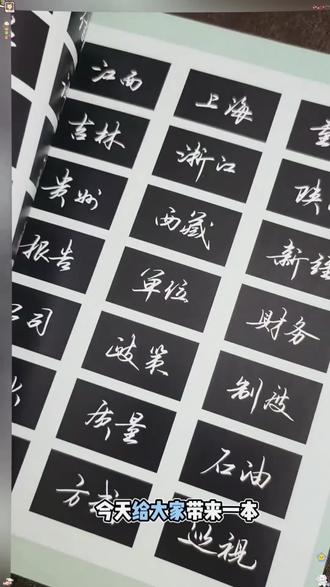 江西 上海
吉林 浙江 陕
贵州 西藏 新疆
报告 单位 财务
司 政策 制度
质量 石油
方 巡视
今天给大家带来一本